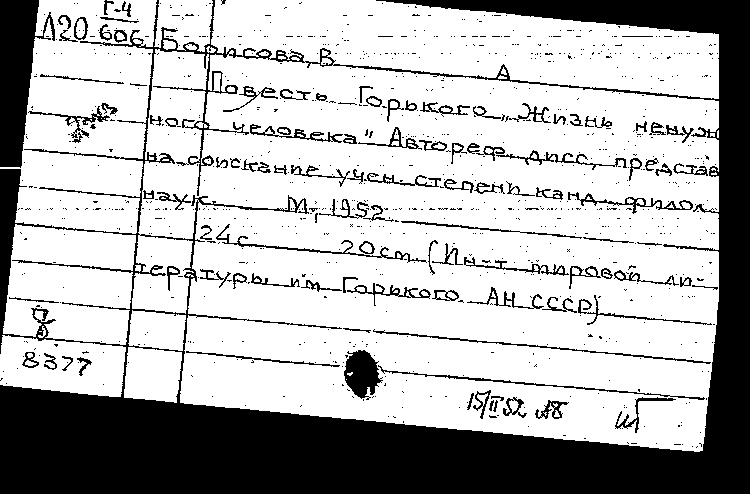 Г-4
Л20 606 Борисова, В
А
Повесть Горького „Жизнь ненуж
ного человека" Автореф. дисс, представ
на соискание учен степени канд филол.
наук. М, 1952
24с 20см (Ин-т мировой ли-
тературы им Горького АН СССР)
8377
15/II 52